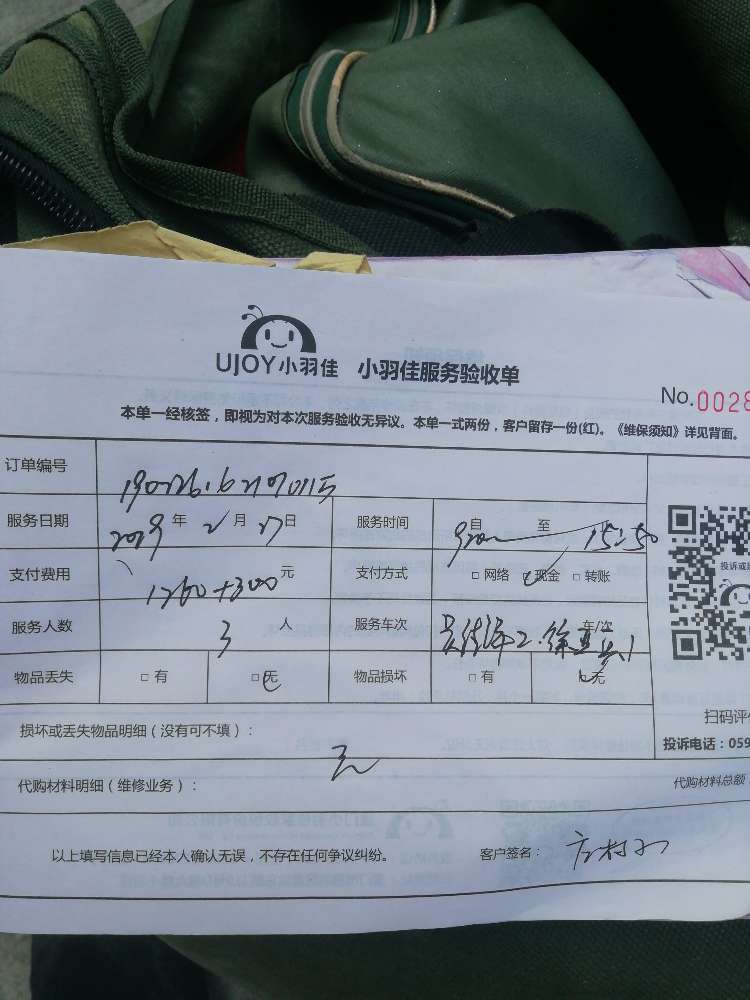 UJOY小羽佳 小羽佳服务验收单
No.0028
本单一经核签，即视为对本次服务验收无异议。本单一式两份，客户留存一份(红)。《维保须知》详见背面。
订单编号
服务日期 2019年2月27日 服务时间 自 至 15:50
支付费用 1260+300元 支付方式 □网络 现金 □转账
服务人数 3人 服务车次 车/次
物品丢失 □有 □无 物品损坏 □有 无
投诉或
扫码评
损坏或丢失物品明细（没有可不填）： 无
投诉电话：059
代购材料明细（维修业务）：
代购材料总额
以上填写信息已经本人确认无误，不存在任何争议纠纷。 客户签名：